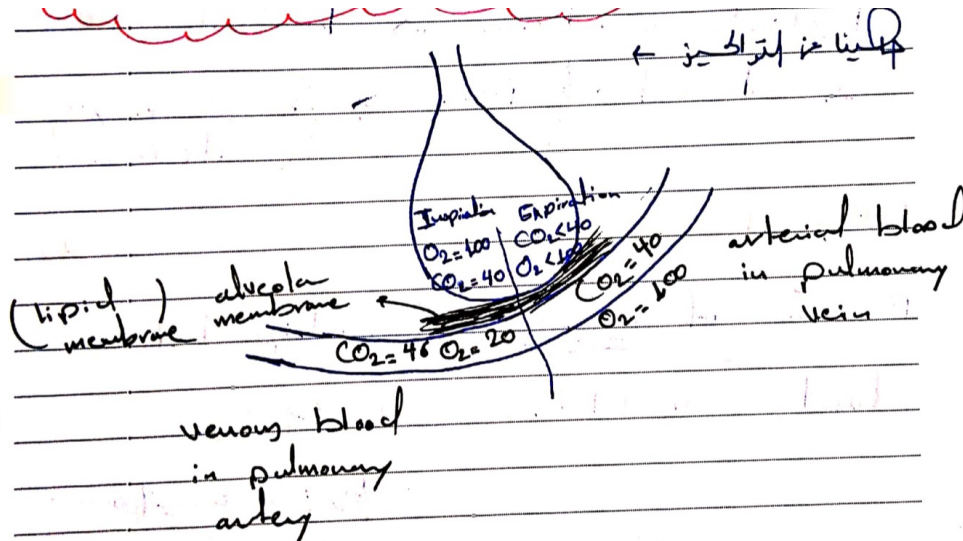 ←
Inspiration
O₂=100
CO₂=40
Expiration
CO₂<40
O₂<100
CO₂=40
O₂=100
arterial blood
in pulmonary
vein
(lipid membrane)
alveolar
membrane
CO₂=46 O₂=20
venous blood
in pulmonary
artery